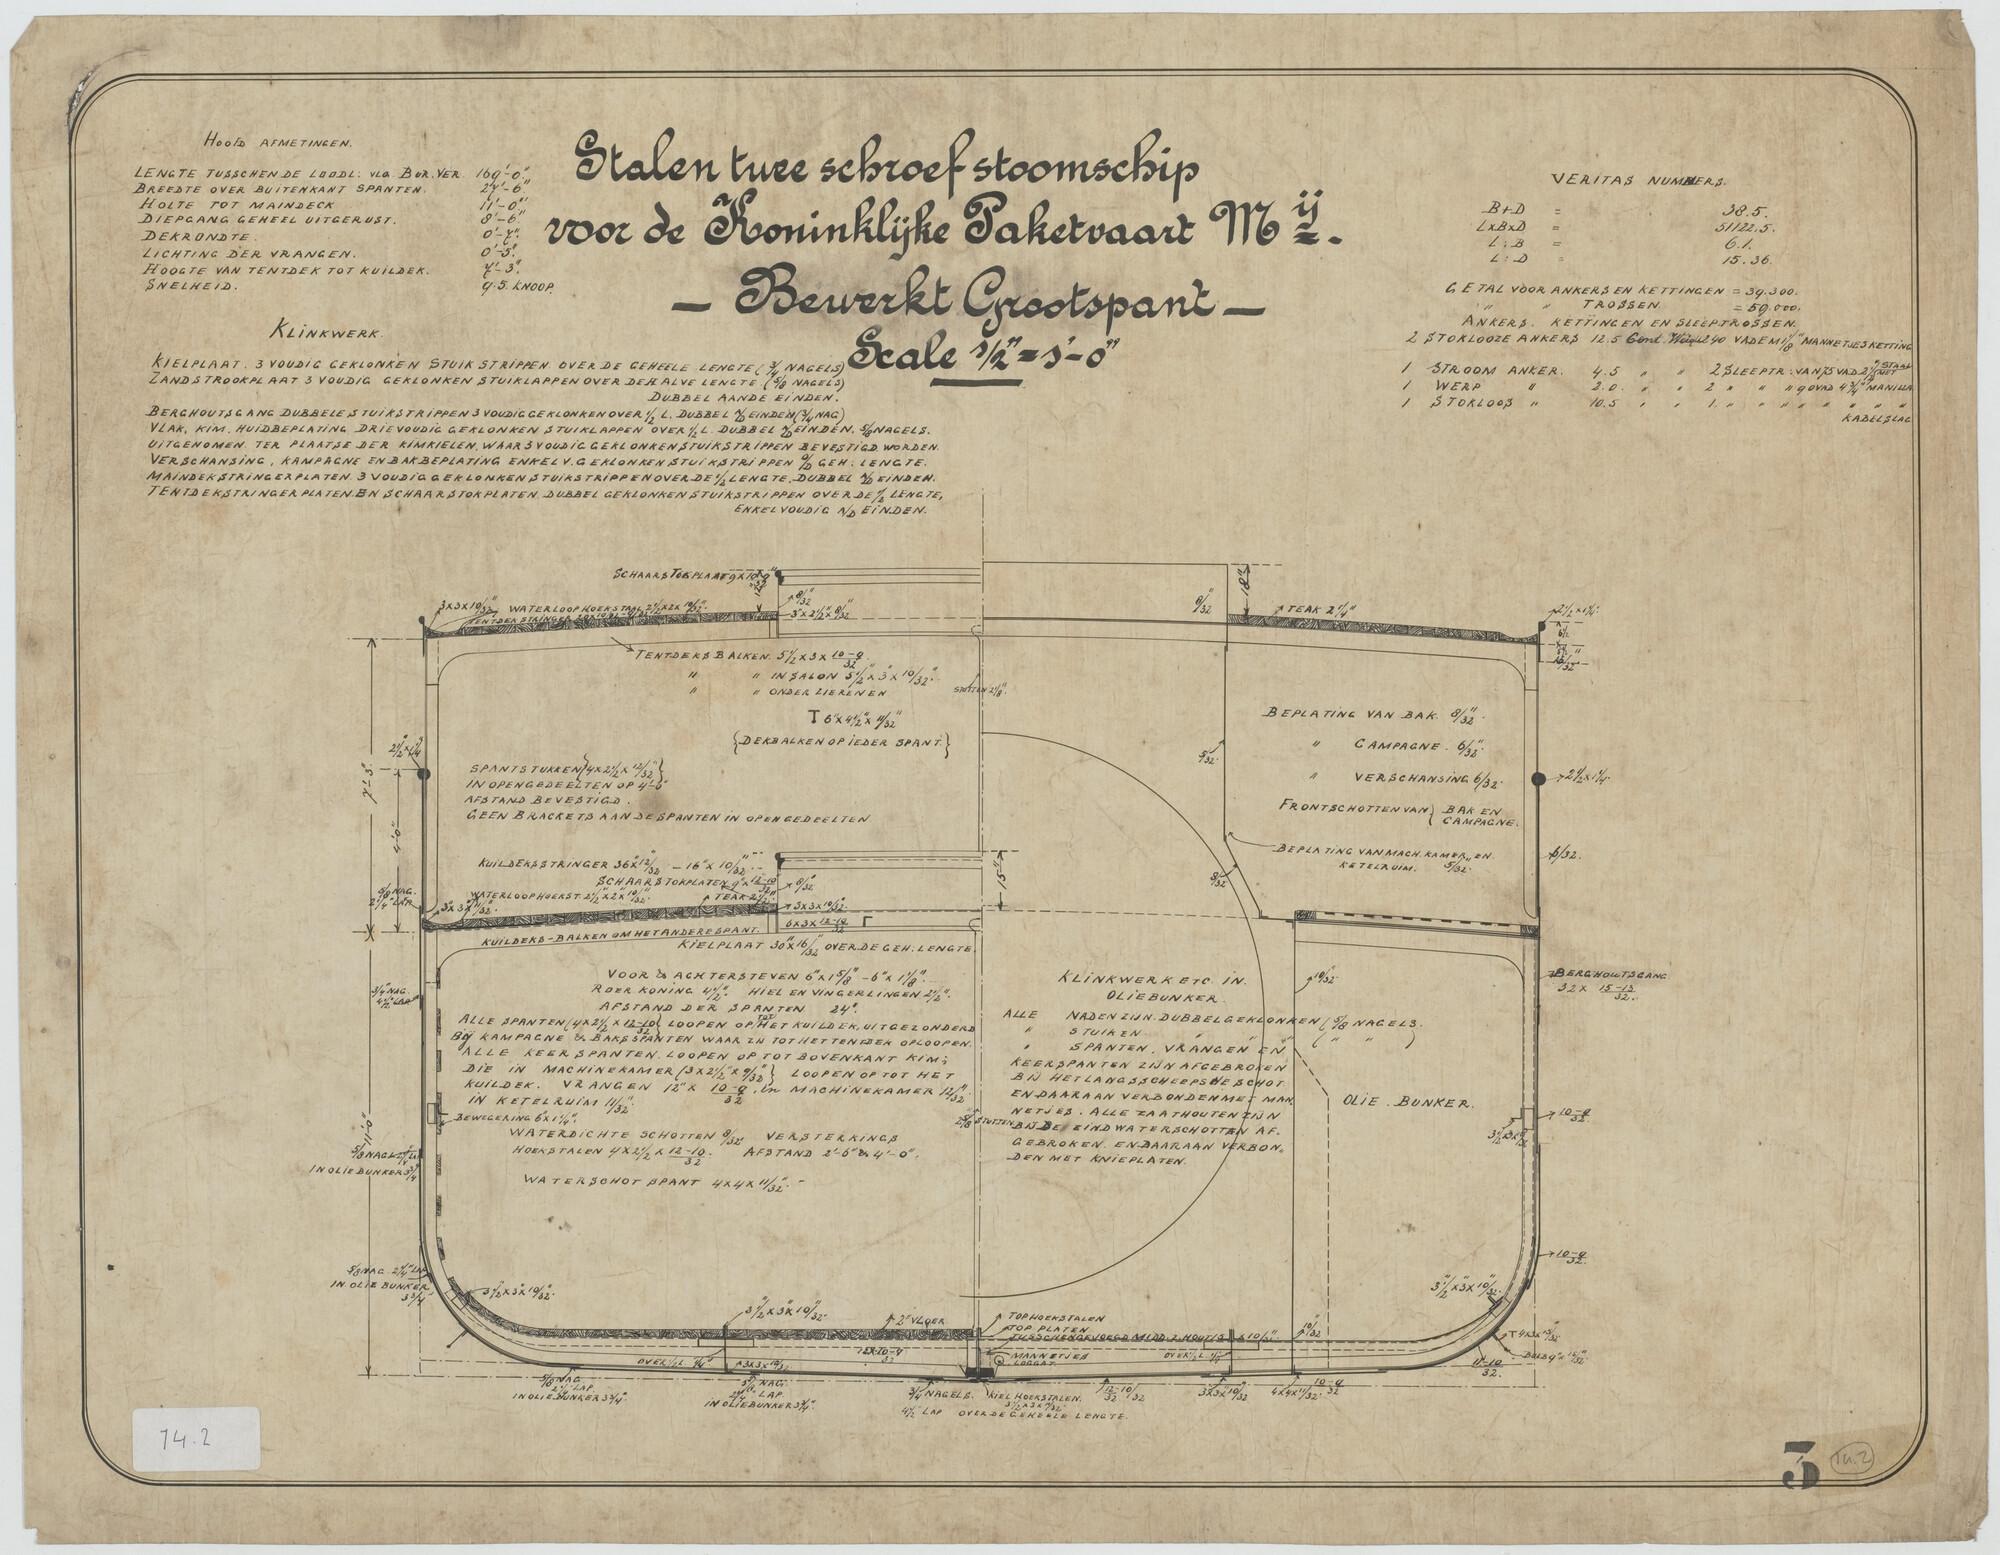 Stalen twee schroef stoomschip
voor de Koninklijke Paketvaart Mij.
— Bewerkt Grootspant —
Scale 1/2" = 1'-0"
HOOFD AFMETINGEN.
LENGTE TUSSCHEN DE LOODL. VLG. BUR. VER. 169'-0"
BREEDTE OVER BUITENKANT SPANTEN. 27'-6"
HOLTE TOT MAINDECK 11'-0"
DIEPGANG GEHEEL UITGERUST. 8'-6"
DEKRONDTE. 0'-7"
LICHTING DER VRANGEN. 0'-5"
HOOGTE VAN TENTDEK TOT KUILDEK. 7'-3"
SNELHEID. 9.5. KNOOP.
KLINKWERK.
KIELPLAAT. 3 VOUDIG GEKLONKEN STUIKSTRIPPEN OVER DE GEHEELE LENGTE (3/4 NAGELS)
ZANDSTROOKPLAAT 3 VOUDIG GEKLONKEN STUIKLAPPEN OVER DE HALVE LENGTE (5/8 NAGELS)
DUBBEL AAN DE EINDEN.
BERGHOUTSGANG DUBBELE STUIKSTRIPPEN 3 VOUDIG GEKLONKEN OVER 1/2 L. DUBBEL A/D EINDEN (3/4 NAG)
VLAK, KIM, HUIDBEPLATING DRIEVOUDIG GEKLONKEN STUIKLAPPEN OVER 1/2 L. DUBBEL A/D EINDEN. 5/8 NAGELS.
UITGENOMEN. TER PLAATSE DER KIMKIELEN, WAAR 3 VOUDIG GEKLONKEN STUIKSTRIPPEN BEVESTIGD WORDEN.
VERSCHANSING, KAMPAGNE EN BAKBEPLATING ENKEL V. GEKLONKEN STUIKSTRIPPEN O/D GEH. LENGTE.
MAINDEKSTRINGERPLATEN. 3 VOUDIG GEKLONKEN STUIKSTRIPPEN OVER DE 1/2 LENGTE, DUBBEL A/D EINDEN.
TENTDEKSTRINGERPLATEN EN SCHAARSTOKPLATEN, DUBBEL GEKLONKEN STUIKSTRIPPEN OVER DE 1/2 LENGTE,
ENKELVOUDIG A/D EINDEN.
VERITAS NUMMERS.
B+D = 38.5.
LxBxD = 51122.5.
L:B = 6.1.
L:D = 15.36.
GETAL VOOR ANKERS EN KETTINGEN = 39.300.
" " TROSSEN = 59.000.
ANKERS. KETTINGEN EN SLEEPTROSSEN.
2 STOKLOOZE ANKERS 12.5 240 VADEM 1 1/8" MANNETJESKETTING
1 STROOM ANKER. 4.5 " " 2 SLEEPTR. VAN 75 VAD
1 WERP " 2.0. " " 2 " " " 90 VAD 4 3/4" MANILLA
1 STOKLOOS " 10.5 " " 1. " " " " " "
KABELSLAG
SCHAARSTOKPLAAT
3x3x10/32"
WATERLOOPHOEKSTAAL 2 1/2x2x10/32"
8/32
3"x2 1/2"x8/32
8/32
18"
TEAK 2 1/4"
2 1/2x1 1/4"
TENTDEKS BALKEN. 5 1/2x3x10-9/32
" " IN SALON 5 1/2"x3"x10/32"
" " ONDER LIEREN EN
STUTTEN 2 1/8"
T 6"x4 1/2"x11/32"
{DEKBALKEN OP IEDER SPANT.}
SPANTSTUKKEN {4x2 1/2x12/32"}
IN OPEN GEDEELTEN OP 4'-0"
AFSTAND BEVESTIGD.
GEEN BRACKETS AAN DE SPANTEN IN OPEN GEDEELTEN
7'-3"
4'-0"
BEPLATING VAN BAK. 8/32"
" CAMPAGNE. 6/32"
" VERSCHANSING 6/32"
FRONTSCHOTTEN VAN { BAK EN
CAMPAGNE.
2 1/2x1 1/4"
5/32
BEPLATING VAN MACH. KAMER EN
KETELRUIM. 5/32"
KUILDEKSSTRINGER 36"x12/32 — 16"x10/32"
SCHAARSTOKPLATEN 9"x12-10/32
WATERLOOPHOEKST. 2 1/2"x2"x10/32"
TEAK
8/32
3x3x10/32
6x3x12-10/32
15"
5/8 NAG.
2 1/4" LAP.
KUILDEKS-BALKEN OM HET ANDERE SPANT.
KIELPLAAT 30"x16/32 OVER DE GEH. LENGTE.
VOOR & ACHTERSTEVEN 6"x1 5/8" – 6"x1 1/8"
ROER KONING 4 1/2" HIEL EN VINGERLINGEN 2 1/2"
AFSTAND DER SPANTEN 24"
ALLE SPANTEN (4x2 1/2x12-10/32) LOOPEN OP TOT HET KUILDEK, UITGEZONDERD
BIJ KAMPAGNE & BAKSSPANTEN WAAR ZIJ TOT HET TENTDEK OPLOOPEN.
ALLE KEERSPANTEN LOOPEN OP TOT BOVENKANT KIM;
DIE IN MACHINEKAMER (3x2 1/2"x9/32) LOOPEN OP TOT HET
KUILDEK. VRANGEN 12"x10-9/32. in MACHINEKAMER 12/32
IN KETELRUIM 11/32"
BEWEGERING 6"x1 1/4"
WATERDICHTE SCHOTTEN 8/32" VERSTERKINGS
HOEKSTALEN 4x2 1/2x12-10/32 AFSTAND 2'-6" & 4'-0"
WATERSCHOT SPANT 4x4x11/32"
3/4" NAG.
4 1/2" LAP
11'-0"
5/8 NAG. 2 1/4" LAP
IN OLIEBUNKER 3 3/4
5/8 NAG. 2 1/4" LAP
IN OLIE BUNKER
3 3/4"
KLINKWERK ETC. IN.
OLIEBUNKER.
ALLE NADEN ZIJN DUBBEL GEKLONKEN (5/8" NAGELS.
" STUIKEN " ( " " )
" SPANTEN, VRANGEN EN
KEERSPANTEN ZIJN AFGEBROKEN
BIJ HET LANGSSCHEEPSCHE SCHOT
EN DAARAAN VERBONDEN MET MAN
NETJES. ALLE ZAATHOUTEN ZIJN
BIJ DE EINDWATERSCHOTTEN AF-
GEBROKEN. EN DAARAAN VERBON-
DEN MET KNIEPLATEN.
10/32
OLIE BUNKER.
BERGHOUTSGANG
32x15-13/32
10-9/32
10-9/32
3 1/2x3x10/32
3 1/2"x3"x10/32
3 1/2"x3"x10/32
2" VLOER
TOPHOEKSTALEN
TOP PLATEN
MANNETJES
LOGGAT.
OVER 1/2 L.
3x3x10/32
10/32
11-10/32
5/8 NAG.
2 1/4" LAP.
IN OLIEBUNKER 3 3/4"
5/8" NAG.
2 1/4" LAP.
IN OLIEBUNKER 3 3/4"
3/4" NAGELS.
4 1/2" LAP OVER DE GEHEELE LENGTE.
KIEL HOEKSTALEN.
12-10/32
3x3x10/32
74.2
3